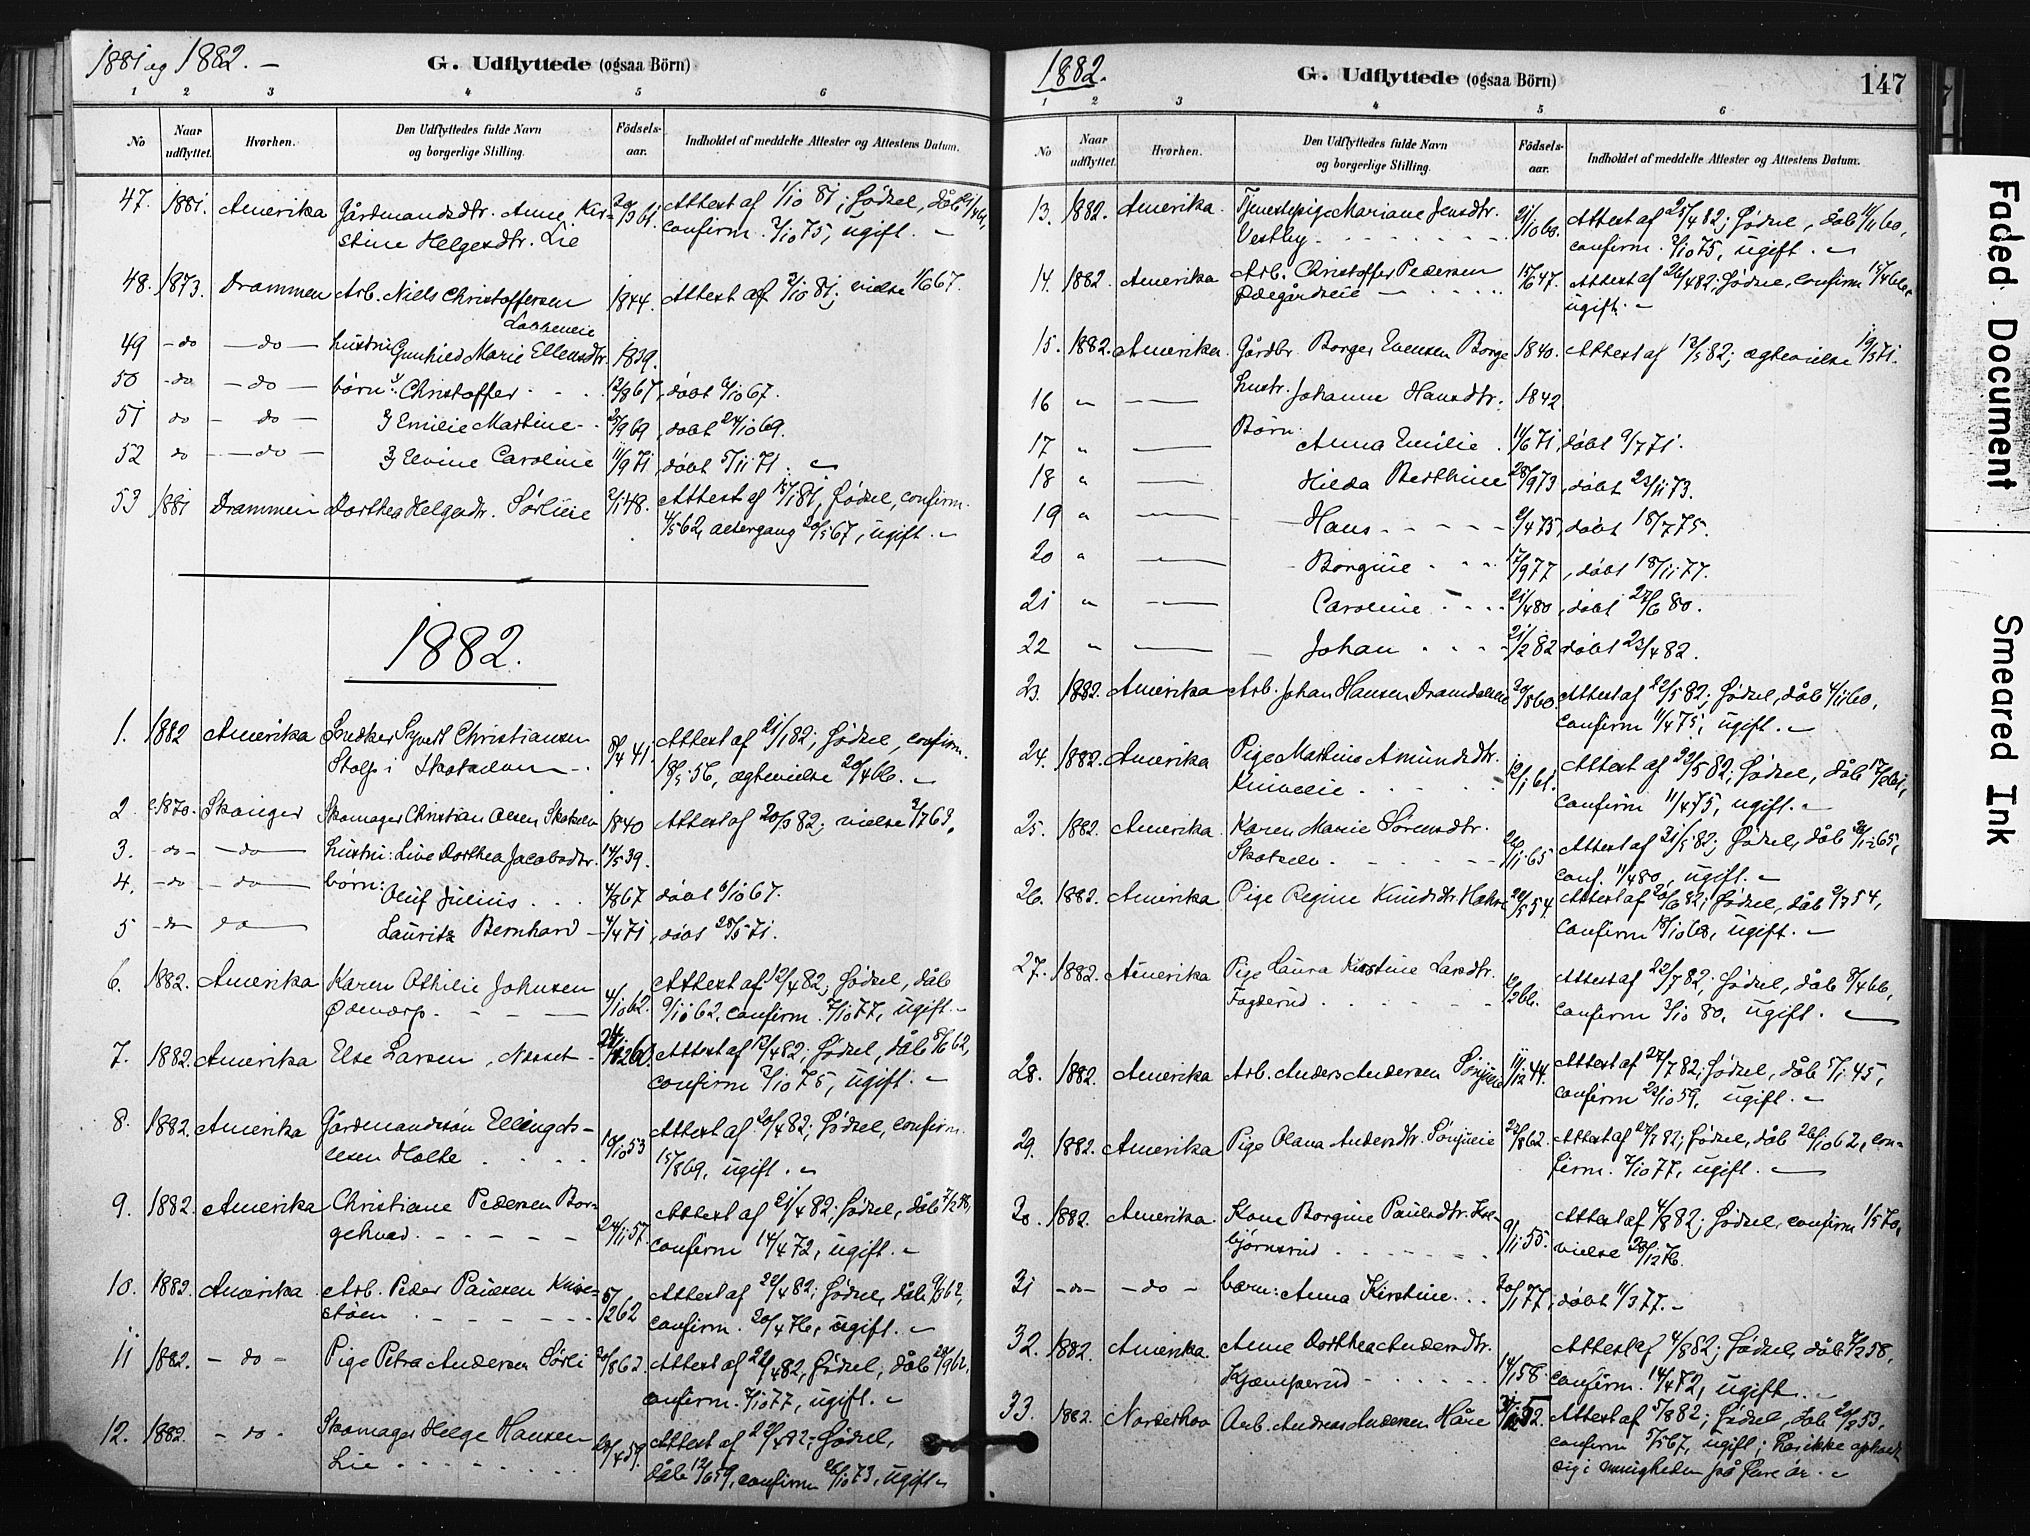 1881 og 1882. –
G. Udflyttede (ogsaa Börn)
1 2 3 4 5 6
No
Naar udflyttet.
Hvorhen.
Den Udflyttedes fulde Navn og borgerlige Stilling.
Födsels-aar.
Indholdet af meddelte Attester og Attestens Datum.
47. 1881. Amerika Gårdmandsdtr. Anne Kir- Attest af 1/10 81; fødsel, dåb
stine Helgesdtr. Lie confirm. 3/10 75, ugift. –
48. 1873. Drammen Arb. Niels Christoffersen 1844. Attest af 3/10 81; vielse 1/6 67.
49 – do – do – hustru Gunhild Marie Ellensdtr. 1839.
50 – do – do – børn: Christoffer 12/8 67, døbt 6/10 67.
51 do – do – Emilie Martine 25/9 69, døbt 24/10 69.
52 do – do – Elvine Caroline 11/9 71, døbt 5/11 71.
53 1881 Drammen Dorthea Helgesdtr. Sørlie 2/1 48. Attest af 15/1 81, fødsel, confirm.
4/5 62, altergang 20/5 67, ugift. –
1882.
1. 1882 Amerika Snedker Syvert Christiansen 8/4 41. Attest af 21/1 82; fødsel, confirm.
Stolp i Skotselven 18/5 56, ægtevielse 20/4 66. –
2 1870. Skanger Skomager Christian Olsen Skotselv 1840 Attest af 20/3 82; vielse 2/7 63.
3. – do – – do – hustru: Live Dorthea Jacobsdtr. 14/5 39.
4. – do – do – børn: Oluf Julius 4/8 67 døbt 6/10 67.
5 – do – do Lauritz Bernhard 4/4 71, døbt 28/5 71.
6. 1882. Amerika Karen Othilie Johnsen 4/10 62. Attest af 12/4 82; fødsel, dåb
9/11 62, confirm. 7/10 77, ugift. –
7. 1882. Amerika Else Larsen, Nesset 60. Attest af 12/4 82; fødsel, dåb 8/6 62,
confirm 3/10 75, ugift. –
8. 1882. Amerika Gårdmandssøn Elling Ols- 10/10 53 Attest af 20/4 82; fødsel, confirm.
esen Holte 15/8 69, ugift. –
9. 1882. Amerika Christiane Pedersen Bor- 24/11 57. Attest af 21/4 82; fødsel, dåb 7/2 58,
gehvad. confirm 14/4 72, ugift. –
10. 1882. Amerika Arb. Peder Paulsen Knive- 5/2 62 Attest af 22/4 82; fødsel, dåb 9/3 62,
støen confirm. 30/4 76, ugift. –
11 1882. – do – Pige Petra Andersen Sørli 20/8 62 Attest af 22/4 82, fødsel, dåb 28/9 62,
confirm. 7/10 77, ugift. –
12. 1882. – do – Skomager Helge Hansen 20/4 59. Attest af 22/4 82; fødsel,
Lie dåb 12/6 59, confirm 26/10 73, ugift –
1882.
G. Udflyttede (ogsaa Börn)
147
1 2 3 4 5 6
No
Naar udflyttet.
Hvorhen.
Den Udflyttedes fulde Navn og borgerlige Stilling.
Födsels-aar.
Indholdet af meddelte Attester og Attestens Datum.
13. 1882. Amerika. Tjenestepige Mariane Jensdtr. 21/10 60. Attest af 25/4 82; fødsel, dåb 11/11 60,
Vestby. confirm. 3/10 75, ugift. –
14. 1882. Amerika Arb. Christoffer Pedersen 15/6 47. Attest af 26/4 82; fødsel, confirm
Ødegårdseie ugift. –
15. 1882. Amerika. Gårdbr. Borger Evensen Borge 1840. Attest af 12/5 82; ægtevielse 19/5 71.
16 „ – hustr. Johanne Hansdtr. 1842
17 „ – Børn: Anna Emilie 11/6 71, døbt 9/7 71.
18 „ – Hilda Berthine 28/9 73, døbt 23/11 73.
19 „ – Hans 2/4 75, døbt 18/7 75.
20 „ – Borgine 17/9 77, døbt 18/11 77.
21 „ – Caroline 21/4 80, døbt 27/6 80.
22 „ – Johan 21/2 82 døbt 23/4 82.
23. 1882. Amerika Arb. Johan Hansen Dramdaleie 20/8 60. Attest af 22/5 82; fødsel, dåb 4/11 60,
confirm 11/4 75, ugift. –
24. 1882. Amerika Pige Mathine Amundsdtr. 12/1 61. Attest af 22/5 82; fødsel, dåb
Kniveeie confirm 11/4 75, ugift. –
25. 1882. Amerika. Karen Marie Sørensdtr. Attest af 31/5 82; fødsel, dåb
Skotselv conf. 11/4 80, ugift. –
26. 1882. Amerika Pige Regine Knudsdtr. Hakve 20/5 54. Attest af 20/6 82; fødsel, dåb 2/7 54,
confirm 18/10 68, ugift. –
27. 1882. Amerika Pige Laura Kirstine Larsdtr. 12/2 66. Attest af 22/7 82; fødsel, dåb 8/4 66,
Fagderud confirm 3/10 80, ugift. –
28. 1882. Amerika Arb. Anders Andersen Sønjueie 11/12 44. Attest af 27/7 82; fødsel, dåb 5/1 45,
confirm 23/10 59, ugift. –
29. 1882. Amerika Pige Olava Andersdtr. Sønjueie 23/8 62. Attest af 27/7 82; fødsel, dåb 26/10 62, con-
firm. 7/10 77, ugift. –
30. 1882. Amerika. Kone Borgine Paulsdtr. 9/11 55. Attest af 4/8 82; fødsel, confirm 1/5 70,
bjørnsrud vielse 28/12 76.
31 – do – – do – barn: Anna Kirstine 20/1 77, døbt 11/3 77. –
32. 1882. Amerika. Anne Dorthea Andersdtr. 14/1 58. Attest af 4/8 82; fødsel, dåb 7/2 58,
Kjæmperud confirm. 14/4 72, ugift. –
33. 1882. Norderhov Arb. Andreas Andersen Håre 31/12 52. Attest af 5/8 82; fødsel, dåb 20/2 53,
confirm 5/5 67, ugift; har ikke opholdt
sig i menigheden på flere år. –
Faded Document
Smeared Ink